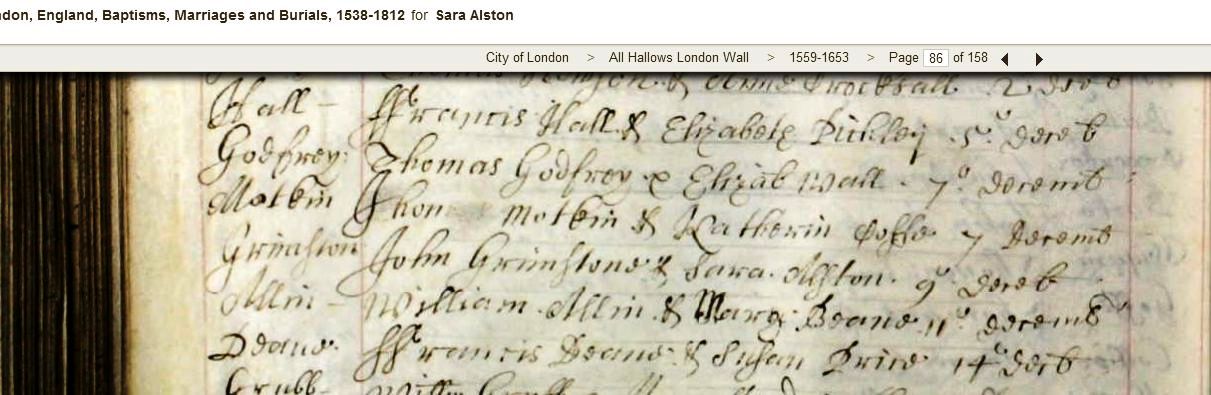 ndon, England, Baptisms, Marriages and Burials, 1538-1812 for Sara Alston
City of London > All Hallows London Wall > 1559-1653 > Page 86 of 158
& Anne 2
Hall - ffrancis Hall & Elizabeth 5° deceb
Godfrey: Thomas Godfrey & Elizab Wall . 7° decemb
Motkin Motkin & Katherin 7 decemb
Grimston John Grimstone & Sara Alston . 9° deceb
Allin - William Allin & Mary Deane 11° decemb
Deane ffrancis Deane & Susan Price 14° decb
Grubb- Willm